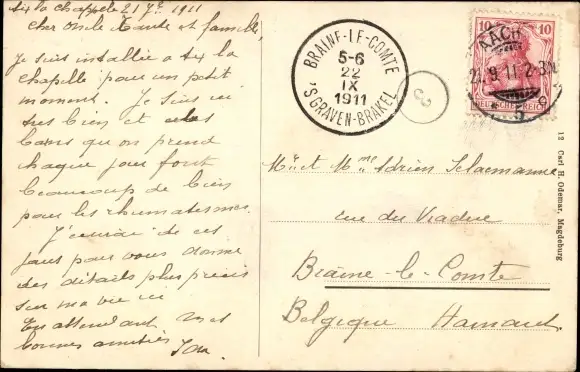 Aix la chapelle 21 7bre 1911
Cher Oncle Tante et famille,
Je suis installée a Aix la
chapelle pour un petit
moment. Je suis ici
tres bien et les
bains qu on prend
chaque jour font
beaucoup de bien
pour les rhumatismes.
J'écrirai de ces
jours pour vous donner
des détails plus précis
sur ma vie ici
En attendant mes
bonnes amitiés
BRAINE-LE-COMTE
5-6
22
IX
1911
'S GRAVEN-BRAKEL
3
10 10
AACHEN
21.9.11.2-3N
DEUTSCHES REICH
* 5 g
Mr et Mme Adrien
rue du Viaduc
Braine-le-Comte
Belgique Hainaut
12 Carl H. Odemar, Magdeburg